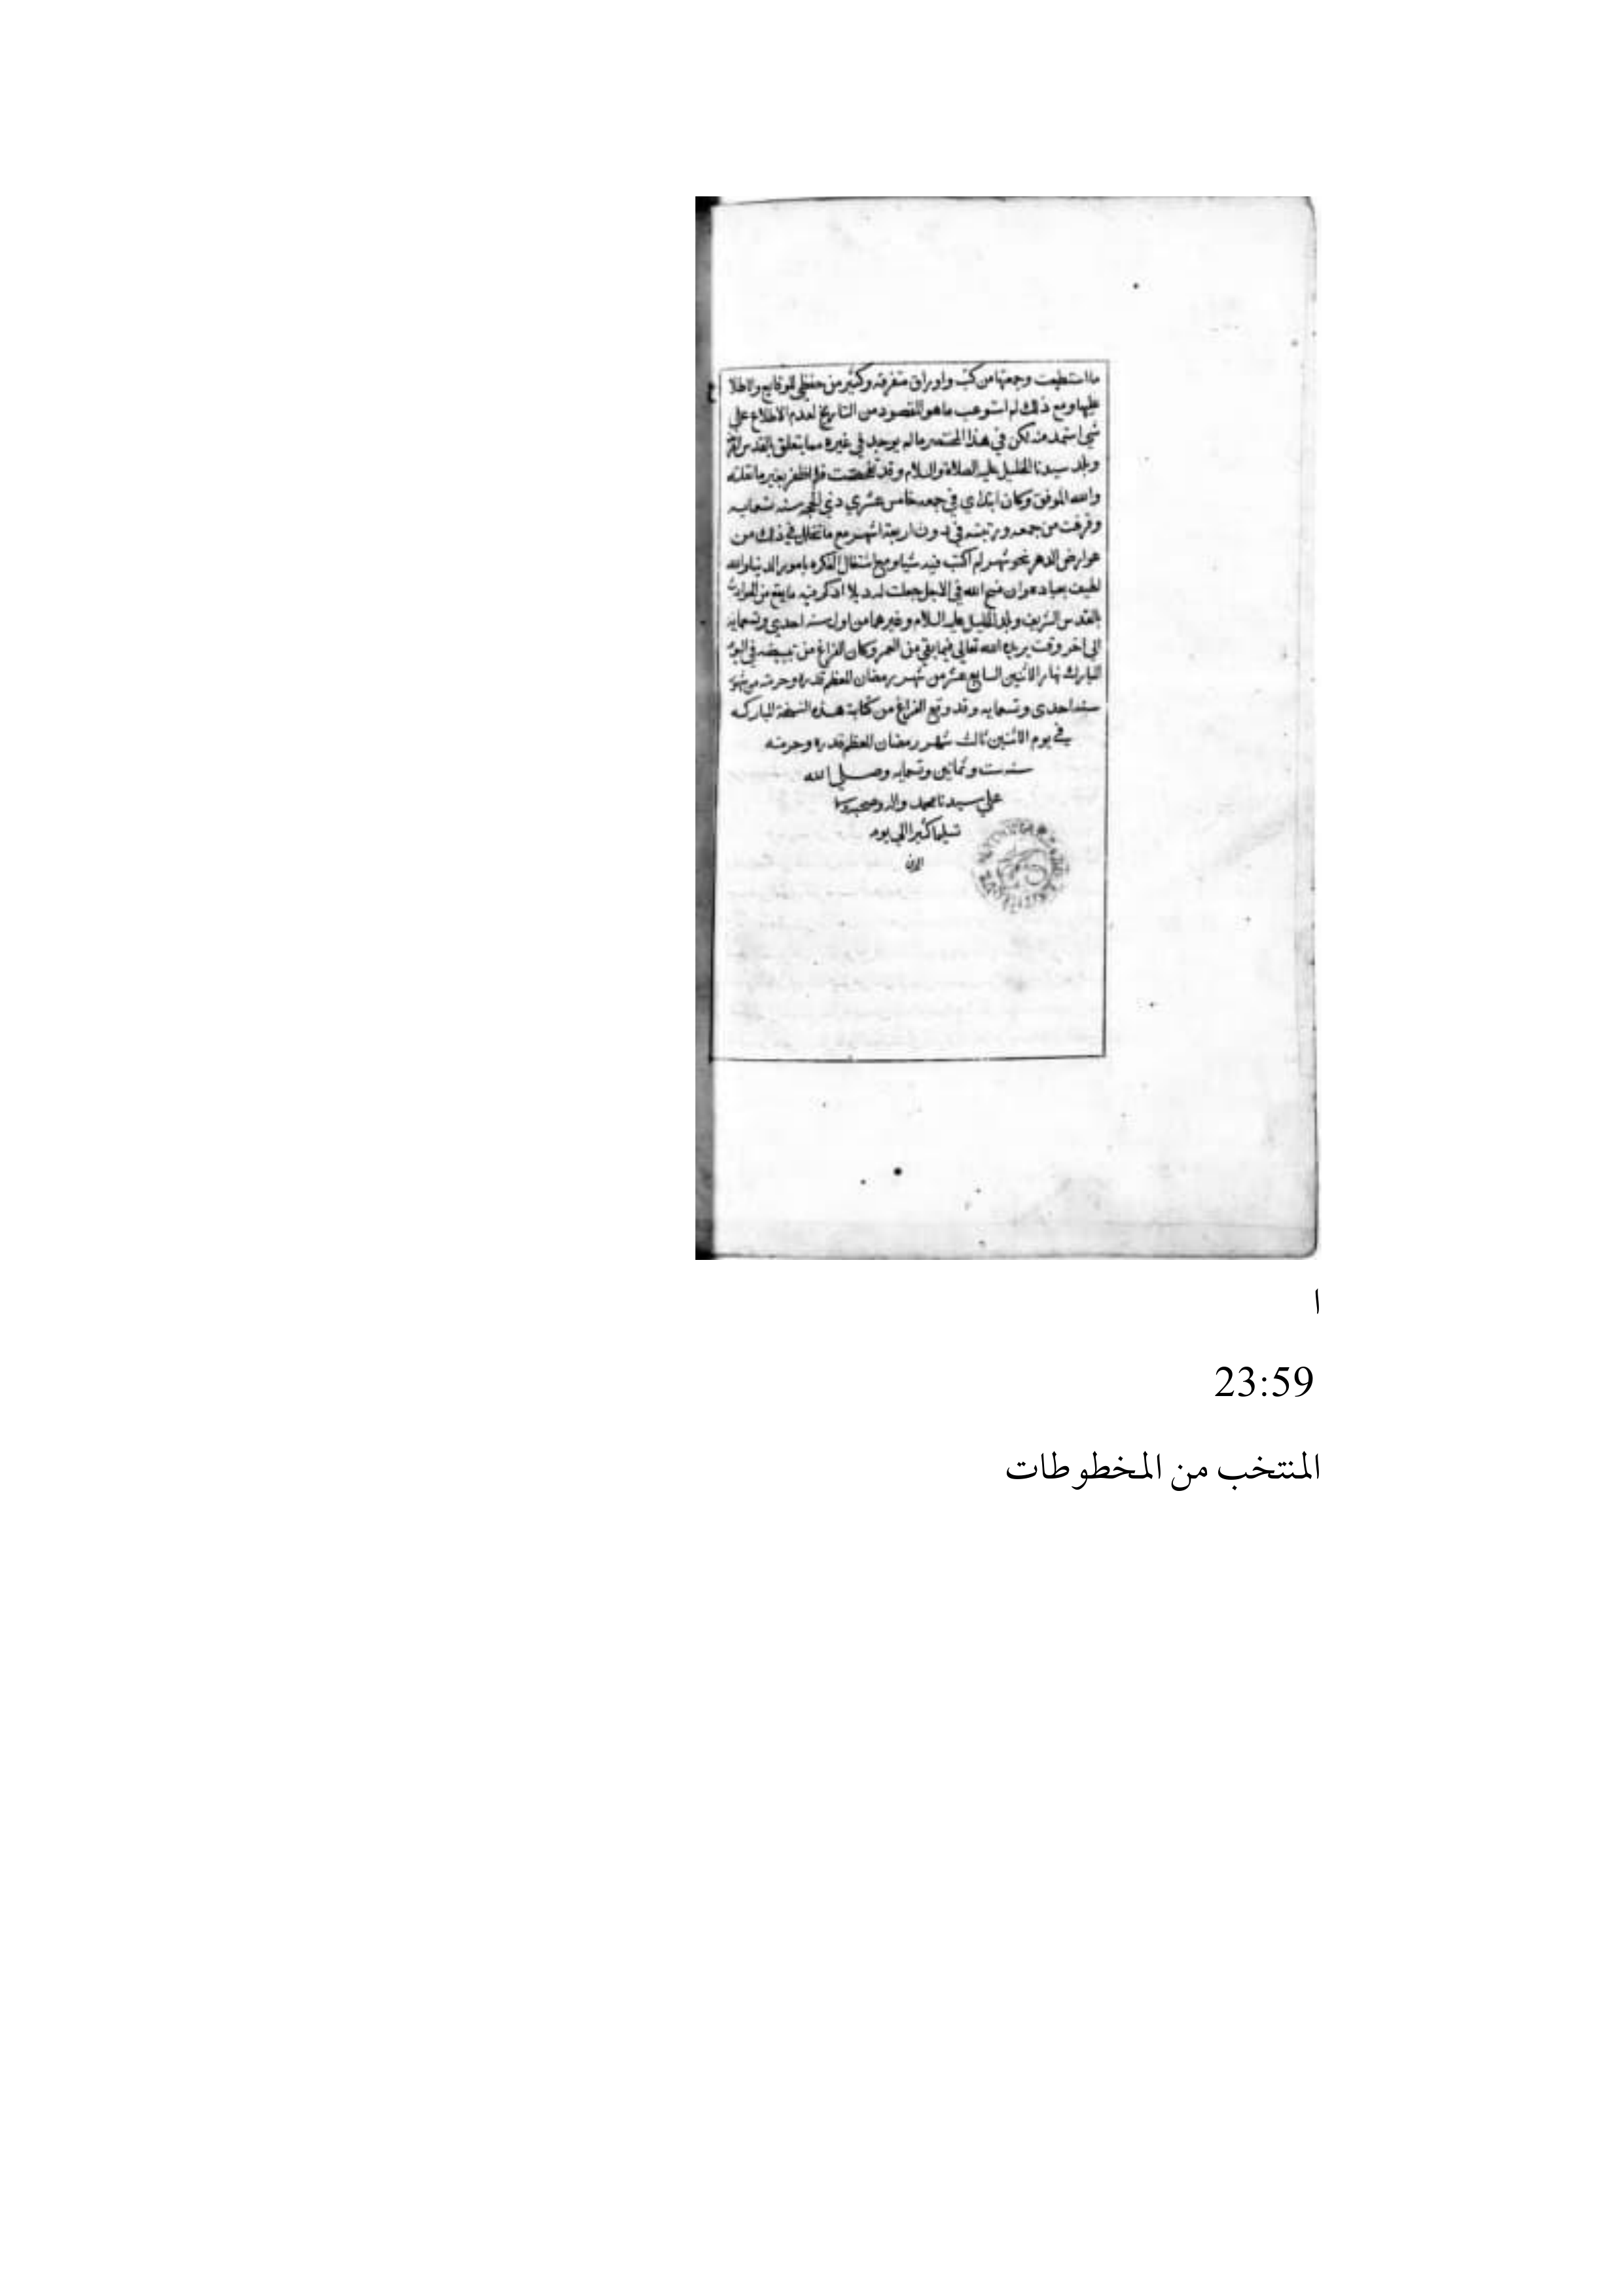 ما استطعت وجمعتها من كتب واوراق متفرقه وكثير من حفظي للوقايع والاطلا
ع
عليها ومع ذلك لم استوعب ما هو المقصود من التاريخ لعدم الاطلاع علي
شي استمد منه لكن في هذا المختصر ما لم يوجد في غيره مما يتعلق بالقدس
وبلد سيدنا الخليل عليه الصلاة والسلام وقد تفحصت فلم اظفر بغير ما نقلته
والله الموفق وكان ابتداي في جمعه خامس عشري ذي الحجه سنه تسعمايه
وفرغت من جمعه وترتيبه في دون اربعة اشهر مع ما تخلل في ذلك من
عوارض الدهر نحو شهر لم اكتب فيه شيا ومع اشتغال الفكره بامور الدنيا والله
لطيف بعباده وان فسح الله في الاجل جعلت له ذيلا اذكر فيه ما يقع من الحوادث
بالقدس الشريف وبلد الخليل عليه السلام وغيرهما من اول سنه احدي وتسعمايه
الى اخر وقت يريده الله تعالى فيما بقي من العمر وكان الفراغ من تبييضه في اليوم
المبارك نهار الاثنين السابع عشر من شهر رمضان المعظم قدره وحرمته من شهور
سنه احدى وتسعمايه وقد وقع الفراغ من كتابة هذه النسخة المباركه
في يوم الاثنين ثالث شهر رمضان المعظم قدره وحرمته
سنه ست وثمانين وتسعمايه وصلى الله
علي سيدنا محمد واله وصحبه وسلم
تسليما كثيرا الي يوم
الدين
ا
23:59
المنتخب من المخطوطات